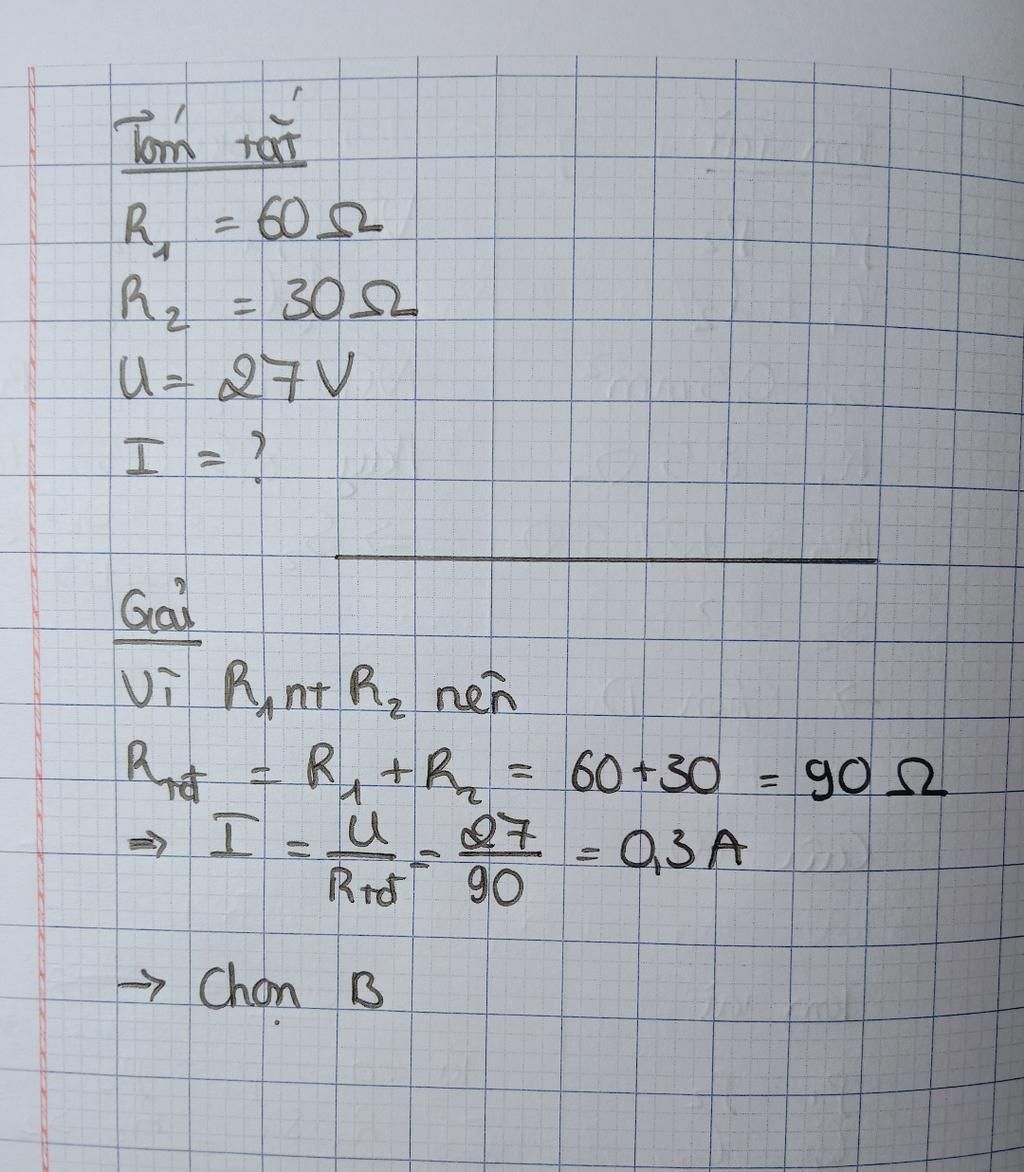 Tóm tắt
R₁ = 60 Ω
R₂ = 30 Ω
U = 27 V
I = ?
Giải
Vì R₁ nt R₂ nên
Rtđ = R₁ + R₂ = 60 + 30 = 90 Ω
⇒ I = U/Rtđ = 27/90 = 0,3 A
→ Chọn B